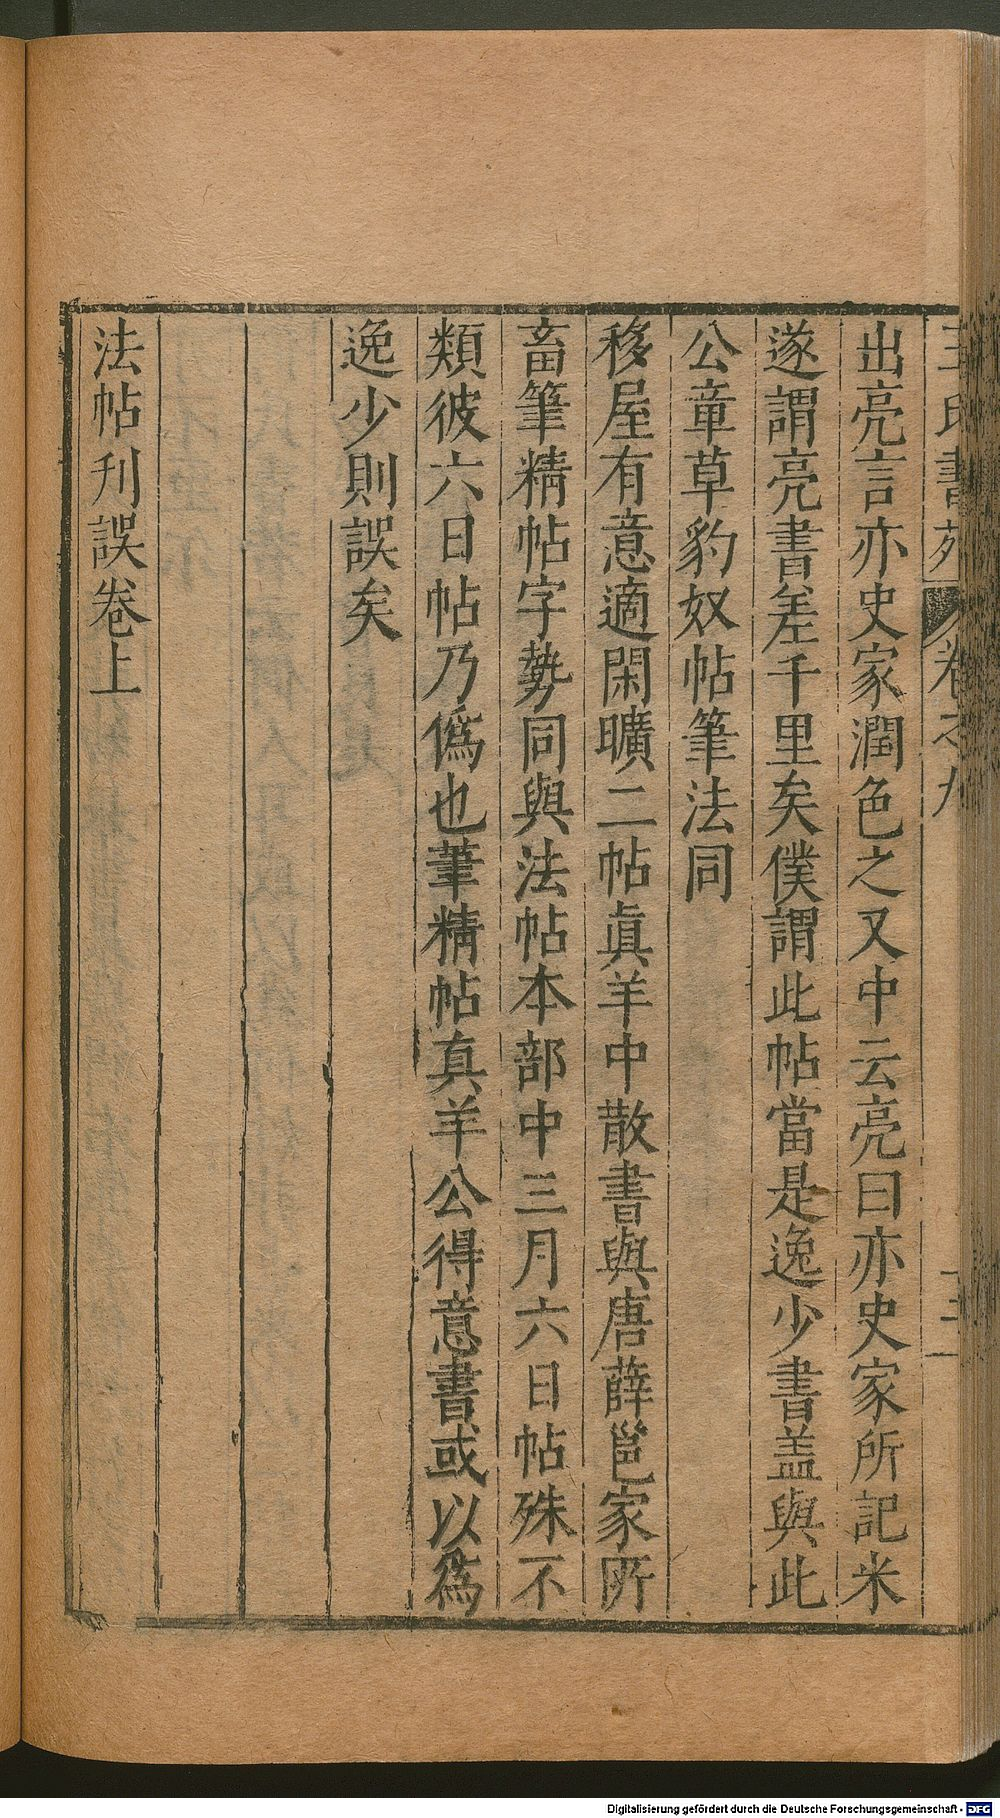 王氏書苑 卷之九
出亮言亦史家潤色之又中云亮曰亦史家所記米
遂謂亮書差千里矣僕謂此帖當是逸少書盖與此
公章草豹奴帖筆法同
移屋有意適閑曠二帖眞羊中散書與唐薛邕家所
畜筆精帖字勢同與法帖本部中三月六日帖殊不
類彼六日帖乃僞也筆精帖真羊公得意書或以爲
逸少則誤矣
法帖刋誤卷上
Digitalisierung gefördert durch die Deutsche Forschungsgemeinschaft - DFG